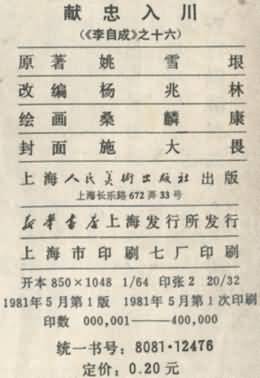 献忠入川
(《李自成》之十六)
原著 姚雪垠
改编 杨兆林
绘画 桑麟康
封面 施大畏
上海人民美术出版社出版
上海长乐路672弄33号
新华书店上海发行所发行
上海市印刷七厂印刷
开本850×1048 1/64 印张2 20/32
1981年5月第1版 1981年5月第1次印刷
印数 000,001——400,000
统一书号:8081·12476
定价:0.20元